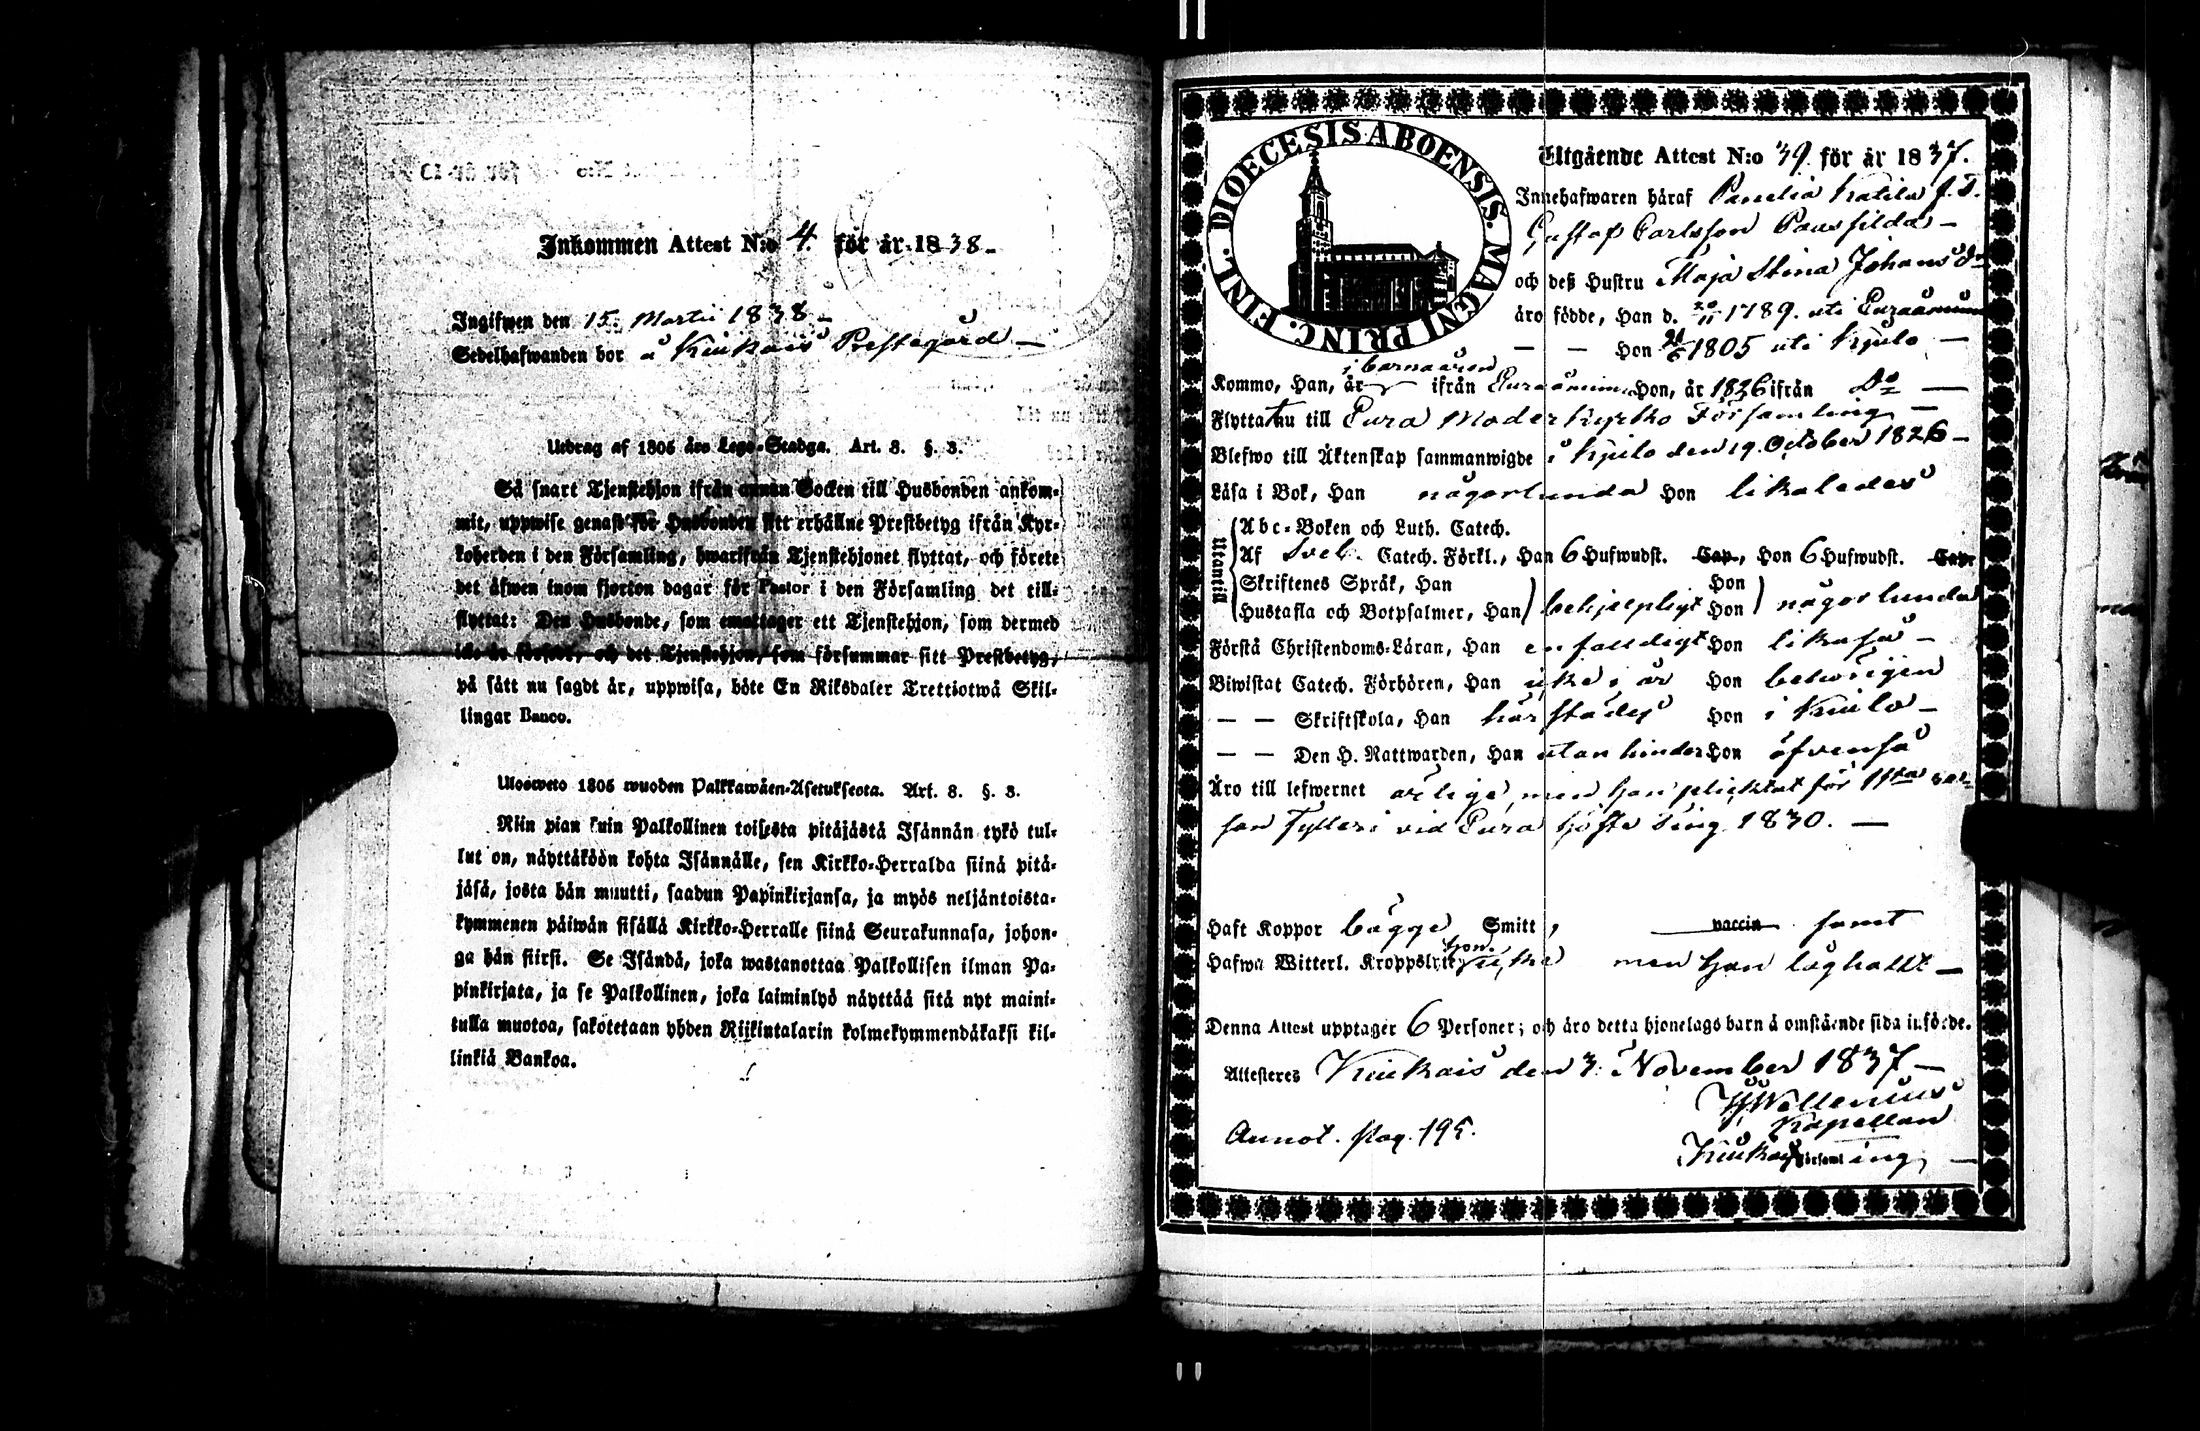 Inkommen Attest N:o 4. för år 1838-
Ingifwen den 15. Martii 1838-
Sedelhafwanden bor å Kiukais Prestegård-
Utdrag af 1805 års Lego-Stadga. Art. 3. §. 3.
Så snart Tjenstehjon ifrån annan Socken till Husbonden ankom-
mit, uppwise genast för Husbonden sitt erhållne Prestbetyg ifrån Kyr-
koherden i den Församling, hwarifrån Tjenstehjonet flyttat, och förete
det äfwen inom fjorton dagar för Pastor i den Församling det till-
flyttat: Den Husbonde, som emottager ett Tjenstehjon, som dermed
icke är försedt, och det Tjenstehjon, som försummar sitt Prestbetyg,
på sätt nu sagdt är, uppwisa, böte En Riksdaler Trettiotwå Skil-
lingar Banco.
Ulosweto 1805 wuoden Palkkawäen-Asetuksesta. Art. 3. §. 3.
Niin pian kuin Palkollinen toisesta pitäjästä Isännän tykö tul-
lut on, näyttäköön kohta Isännälle, sen Kirkko-Herralda siinä pitä-
jäsä, josta hän muutti, saadun Papinkirjansa, ja myös neljäntoista-
kymmenen päiwän sisällä Kirkko-Herralle siinä Seurakunnasa, johon-
ga hän siirsi. Se Isändä, joka wastanottaa Palkollisen ilman Pa-
pinkirjata, ja se Palkollinen, joka laiminlyö näyttää sitä nyt maini-
tulla muotoa, sakotetaan yhden Riikintalarin kolmekymmendäkaksi kil-
linkiä Bankoa.
DIOECESIS ABOENSIS. MAGNI PRINC. FINL.
Utgående Attest N:o 39. för år 1837.
Innehafwaren häraf Panelia Katila f.d.
Gustaf Carlsson Pausfilda-
och deß Hustru Maja Stina Johansdr
äro födde, Han d. 20/11 1789. uti Euraåminne
— — Hon 1805 uti Kjulo —
i barnaåren
Kommo, Han, år ifrån Euraåminne Hon, år 1826 ifrån Do —
Flytta nu till Eura Moderkyrko Församling —
Blefwo till Äktenskap sammanwigde i Kjulo den 19. October 1826-
Läsa i Bok, Han någorlunda Hon likaledes
Utantill
Abc-Boken och Luth. Catech.
Af Sveb. Catech. Förkl., Han 6 Hufwudst. Cap., Hon 6 Hufwudst. Cap.
Skriftenes Språk, Han Hon
Hustafla och Botpsalmer, Han behjelpligt Hon någorlunda
Förstå Christendoms-Läran, Han enfaldigt Hon likaså -
Biwistat Catech. Förhören, Han icke i år Hon behörigen
— — Skriftskola, Han härstädes Hon i Kiulo -
— — Den H. Nattwarden, Han utan hinder Hon äfvenså
Äro till lefwernet ärlige, men han pliktat för 1sta resan
Fylleri vid Eura höste Ting 1830. —
Haft Koppor bägge Smitt, vaccin samt
Hafwa Witterl. Kroppslyte hon icke men han låghalt —
Denna Attest upptager 6 Personer; och äro detta hjonelags barn å omstående sida införde.
Attesteres Kiukais den 3. November 1837 —
Wallenius
Annot. pag. 195. Kapellan
Kiukais Församling —